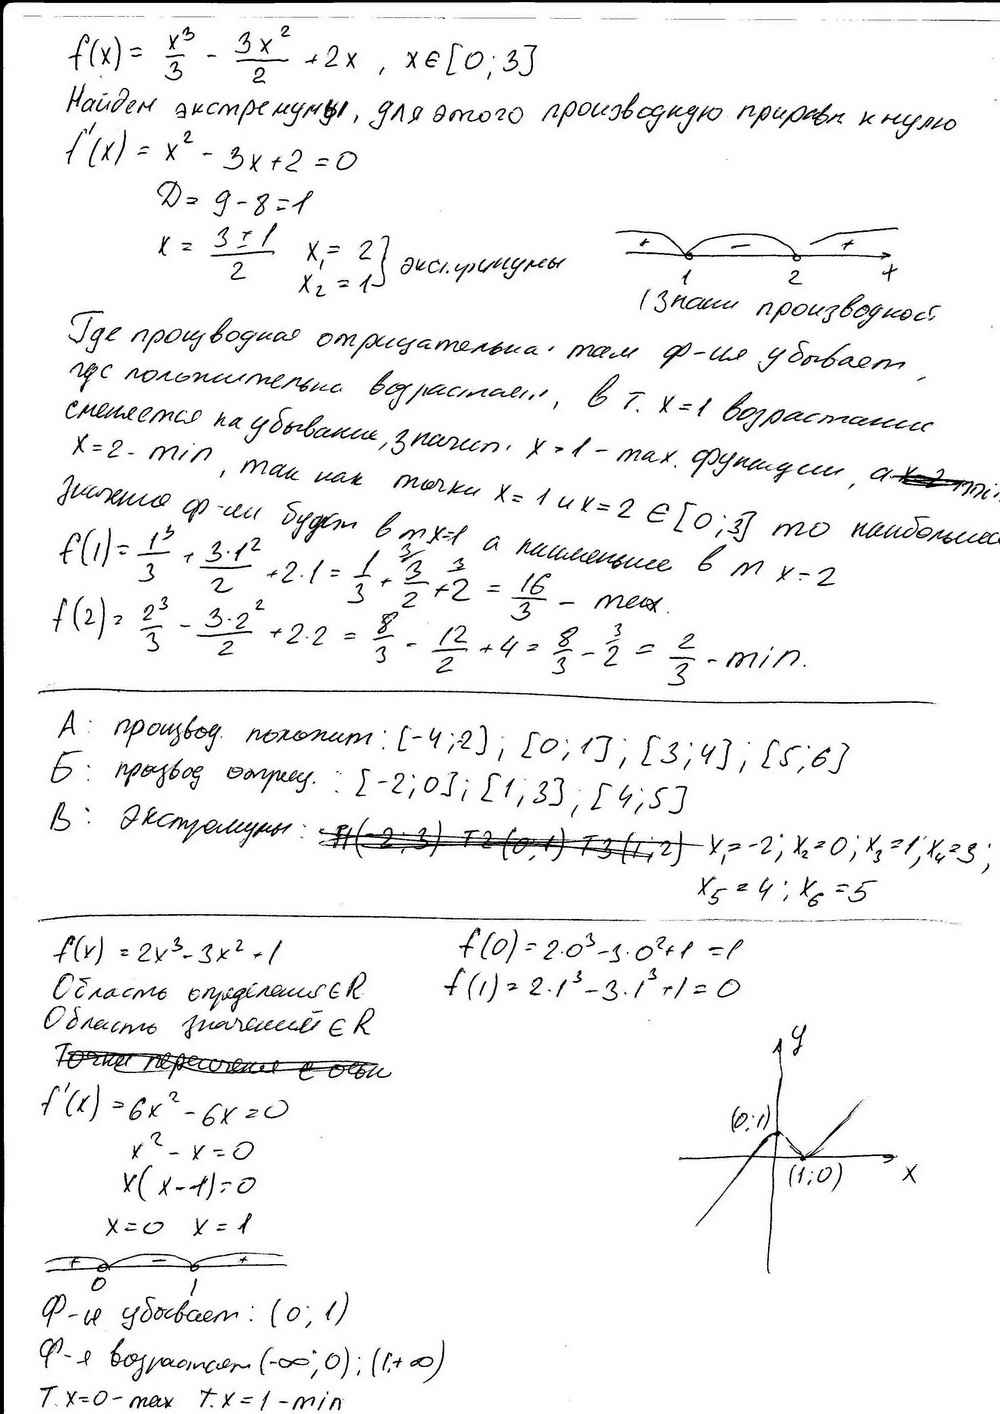 f(x) = x³/3 - 3x²/2 + 2x , x ∈ [0; 3]
Найдем экстремумы, для этого производную приравн к нулю
f'(x) = x² - 3x + 2 = 0
D = 9 - 8 = 1
x = (3 ± 1)/2 x₁ = 2 x₂ = 1 } экстримумы
+ - +
1 2 x
(Знаки производной
Где производная отрицательна там ф-ия убывает,
где положительна возрастает, в т. x=1 возрастание
сменяется на убывание, значит x=1 - max. функции, а x=2 min
x=2 - min, так как точки x=1 и x=2 ∈ [0;3] то наибольшее
значение ф-ии будет в т x=1 а наименьшее в т x=2
f(1) = 1³/3 + 3·1²/2 + 2·1 = 1/3 + 3/2 + 2 = 16/3 - max.
f(2) = 2³/3 - 3·2²/2 + 2·2 = 8/3 - 12/2 + 4 = 8/3 - 3/2 = 2/3 - min.
А: производ. положит: [-4;2]; [0;1]; [3;4]; [5;6]
Б: прозвод отриц. : [-2;0]; [1,3]; [4;5]
В: Экстремумы: T1(-2;3) T2(0,1) T3(1;2) x₁=-2; x₂=0; x₃=1; x₄=3;
x₅=4; x₆=5
f(x) = 2x³ - 3x² + 1
Область определения ∈ R
Область значений ∈ R
Точки пересечения с осью
f'(x) = 6x² - 6x = 0
x² - x = 0
x(x-1) = 0
x=0 x=1
+ - +
0 1
Ф-ия убывает: (0; 1)
Ф-я возрастает (-∞; 0); (1;+∞)
Т. x=0 - max т. x=1 - min
f(0) = 2·0³ - 3·0² + 1 = 1
f(1) = 2·1³ - 3·1³ + 1 = 0
y
(0;1)
(1;0)
x